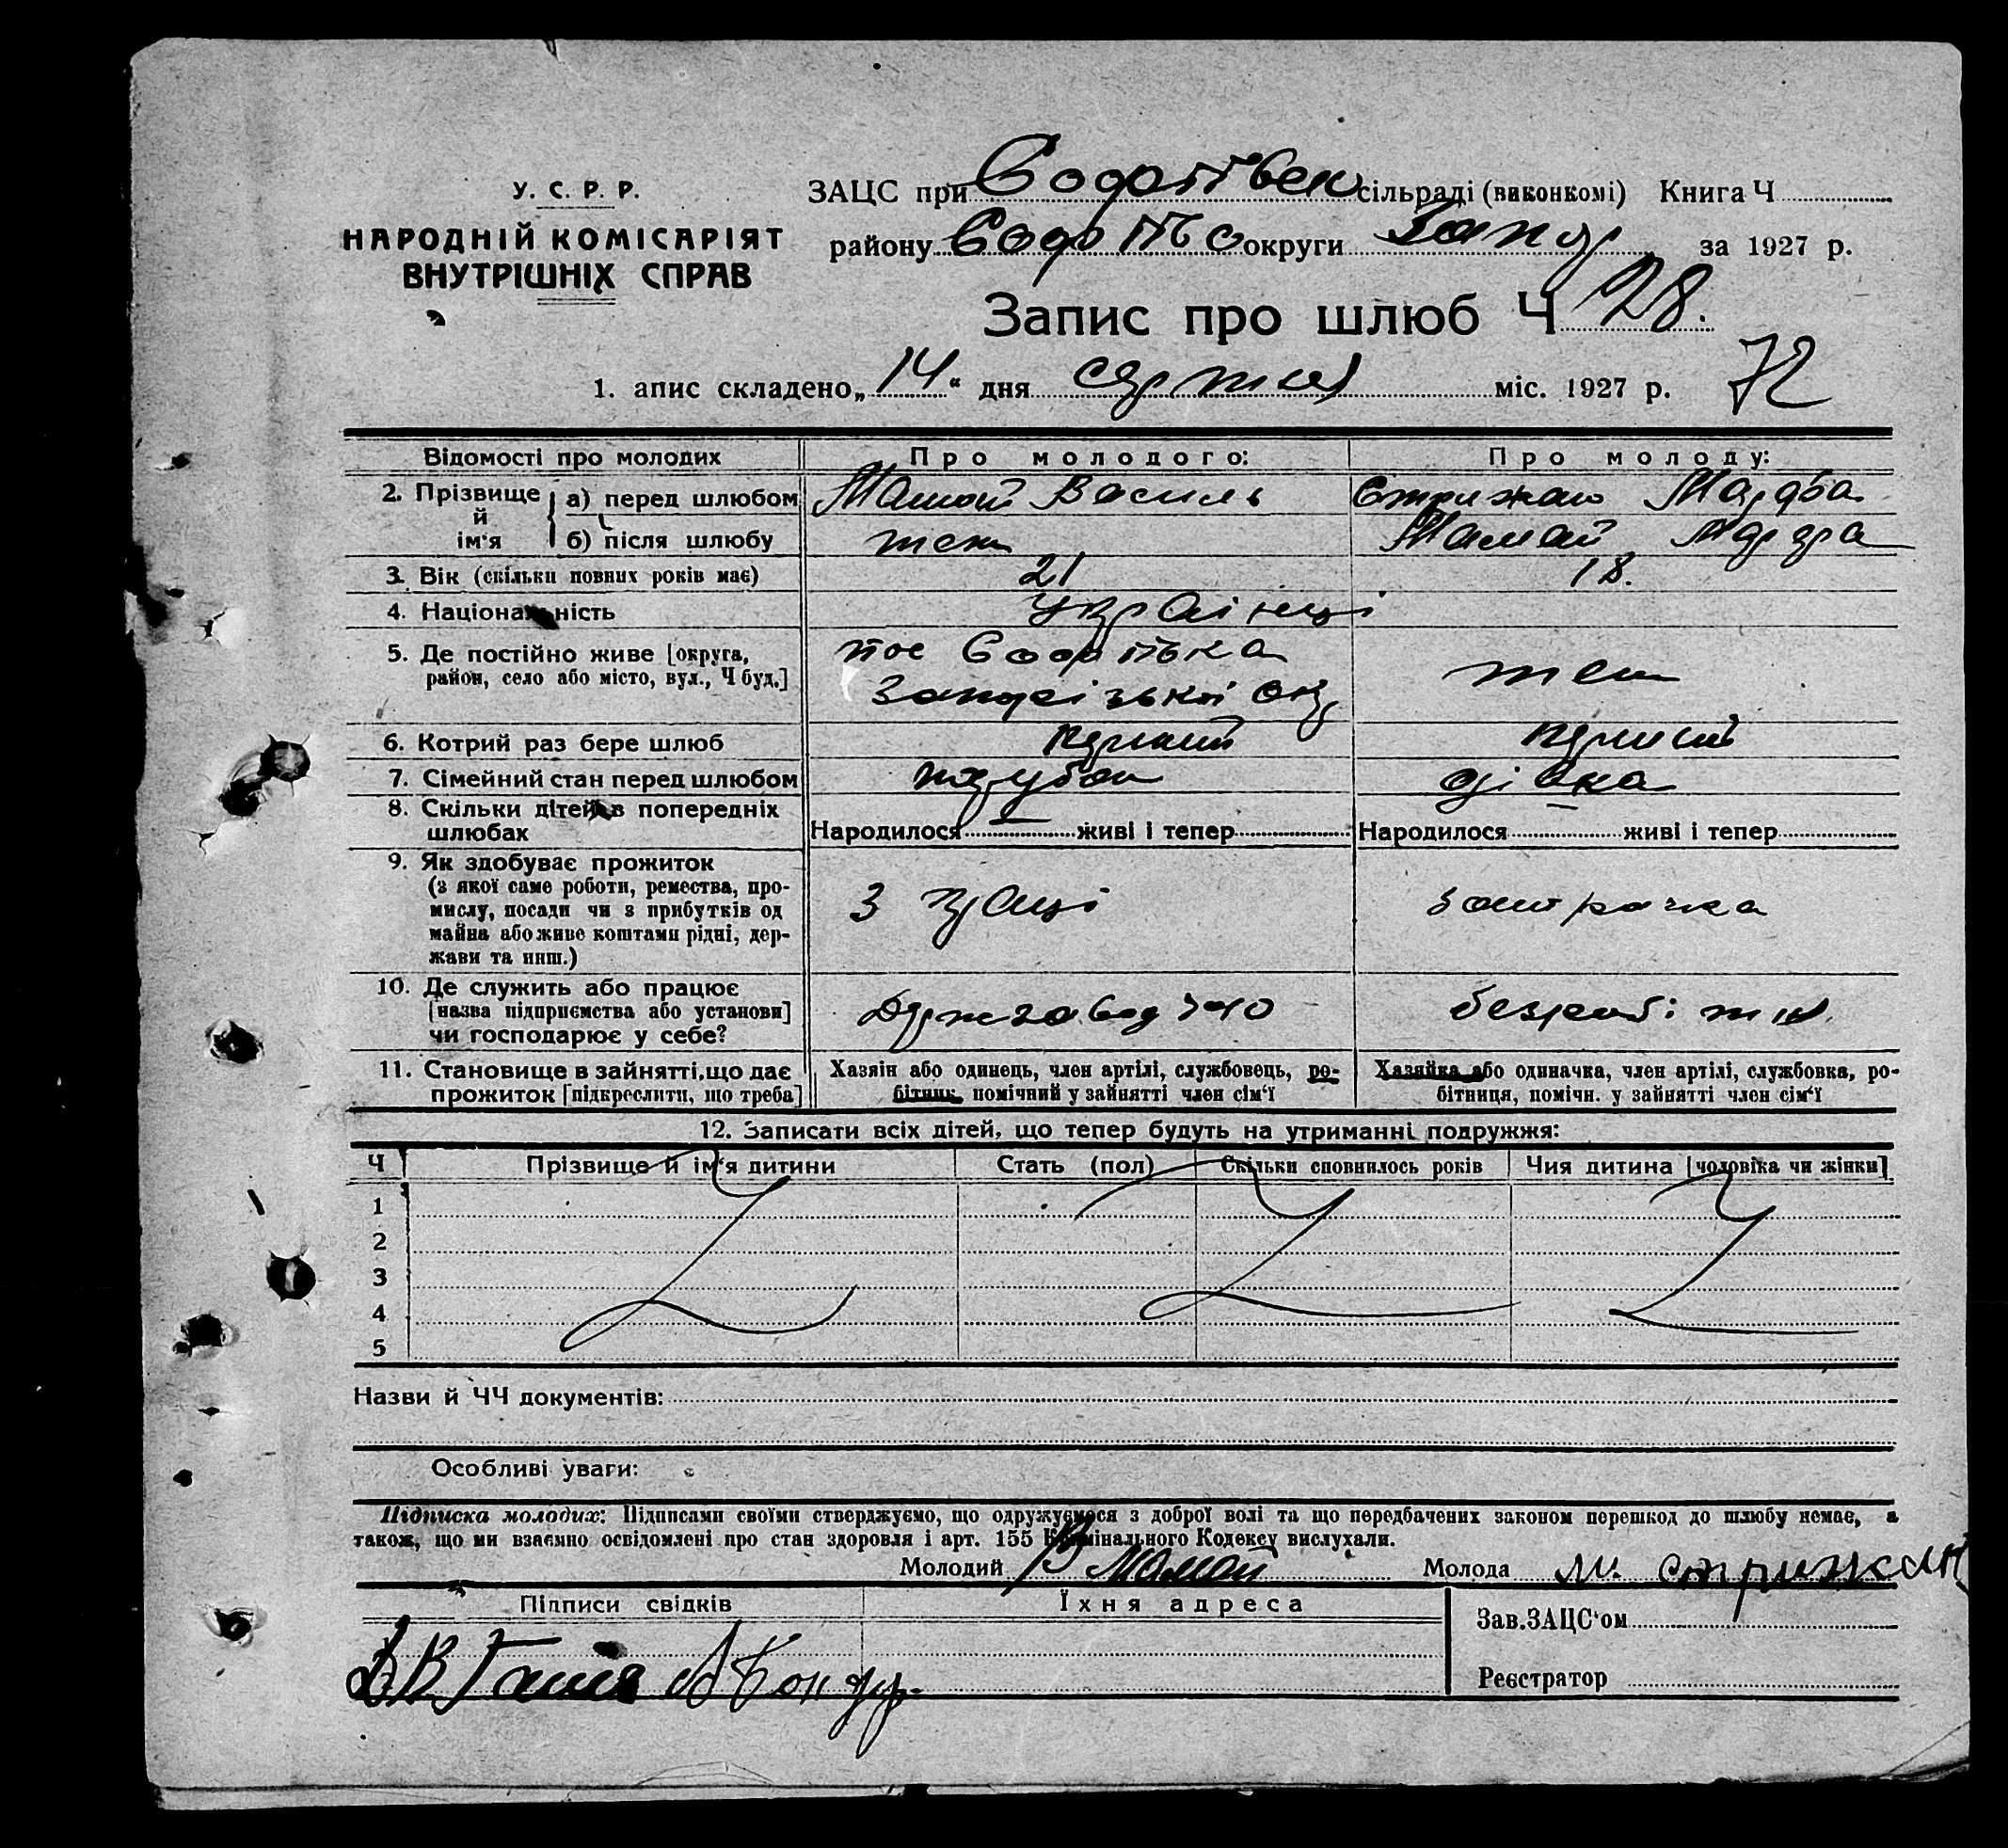 У. С. Р. Р.
НАРОДНІЙ КОМІСАРІЯТ
ВНУТРІШНІХ СПРАВ
ЗАЦС при Софотівск сільраді (виконкомі) Книга Ч
району округи Запор за 1927 р.
Запис про шлюб Ч 28.
1. апис складено „14“ дня серпня міс. 1927 р. 72
Відомості про молодих Про молодого: Про молоду:
2. Прізвище й ім'я а) перед шлюбом Мамай Василь Стрижак
б) після шлюбу теж Мамай
3. Вік (скільки повних років має) 21 18.
4. Національність Українці
5. Де постійно живе [округа, район, село або місто, вул., Ч буд.] пос теж
Запорізької окр
6. Котрий раз бере шлюб перший перший
7. Сімейний стан перед шлюбом парубок дівка
8. Скільки дітей в попередніх шлюбах Народилося — живі і тепер Народилося — живі і тепер
9. Як здобуває прожиток
(з якої саме роботи, ремества, про-
мислу, посади чи з прибутків од
майна або живе коштами рідні, дер-
жави та инш.)
З праці
10. Де служить або працює
[назва підприємства або установи]
чи господарює у себе?
Держзавод безробітня
11. Становище в зайнятті, що дає
прожиток [підкреслити, що треба]
Хазяін або одинець, член артілі, службовець, ро-
бітник, помічний у зайнятті член сім'ї
Хазяйка або одиначка, член артілі, службовка, ро-
бітниця, помічн. у зайнятті член сім'ї
12. Записати всіх дітей, що тепер будуть на утриманні подружжя:
Ч Прізвище й ім'я дитини Стать (пол) Скільки сповнилось років Чия дитина [чоловіка чи жінки]
1
2
3
4
5
Назви й ЧЧ документів:
Особливі уваги:
Підписка молодих: Підписами своїми стверджуємо, що одружуємося з доброї волі та що передбачених законом перешкод до шлюбу немає, а
також, що ми взаємно освідомлені про стан здоровля і арт. 155 Кримінального Кодексу вислухали.
Молодий В Мамай Молода М. Стрижак
Підписи свідків Їхня адреса Зав. ЗАЦС'ом
Реєстратор